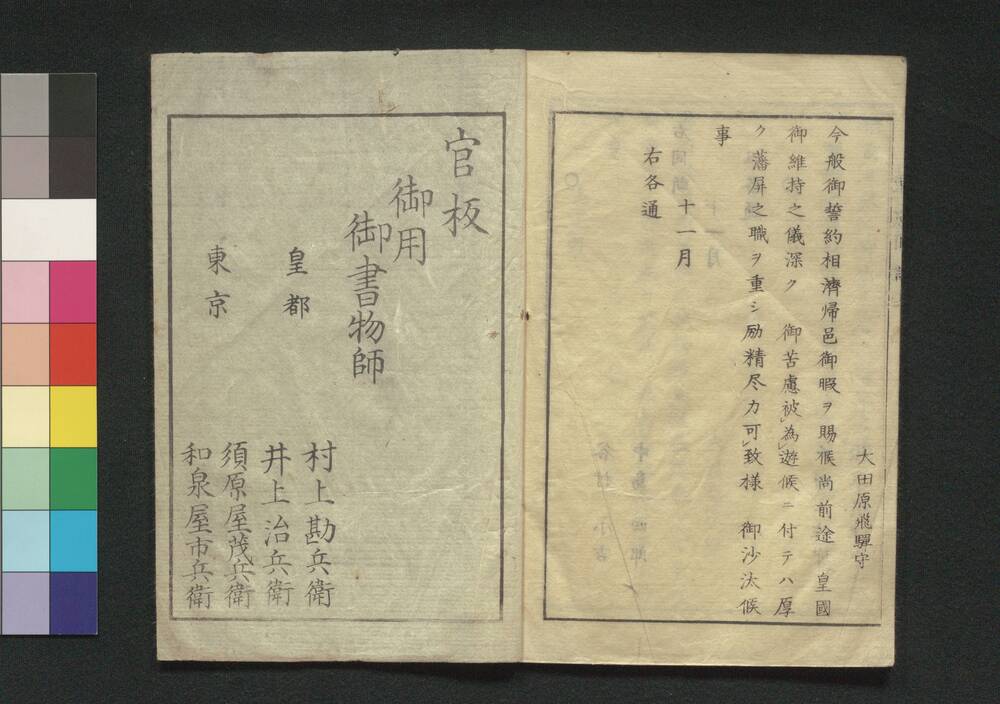 大田原飛驒守
今般御誓約相濟帰邑御暇ヲ賜候尚前途　皇國
御維持之儀深ク　御苦慮被為遊候ニ付テハ厚
ク藩屏之職ヲ重シ励精尽力可致様　御沙汰候
事
十一月
右各通
官板
御用
御書物師
皇都
村上勘兵衛
井上治兵衛
東京
須原屋茂兵衛
和泉屋市兵衛